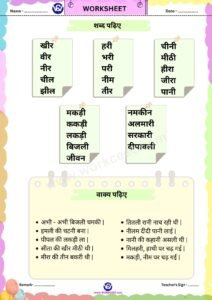 Name :
WORKSHEET
Date :
शब्द पढ़िए
खीर
वीर
नीर
चील
झील
हरी
भरी
परी
नीम
तीर
चीनी
मीठी
हीरा
जीरा
पानी
मकड़ी
ककड़ी
लकड़ी
बिजली
जीवन
नमकीन
अलमारी
सरकारी
दीपावली
वाक्य पढ़िए
अभी - अभी बिजली चमकी |
इमली की चटनी बना |
पीपल की लकड़ी ला |
सीता की खीर मीठी थी |
मीरा की तीन बकरी थी |
तितली रानी नाच रही थी |
नीलम दीदी पानी लाई |
नानी की कहानी असली थी |
गिलहरी, हाथी पर चढ़ गई |
मकड़ी, नीम पर चढ़ गई |
Remark:
Teacher's Sign :